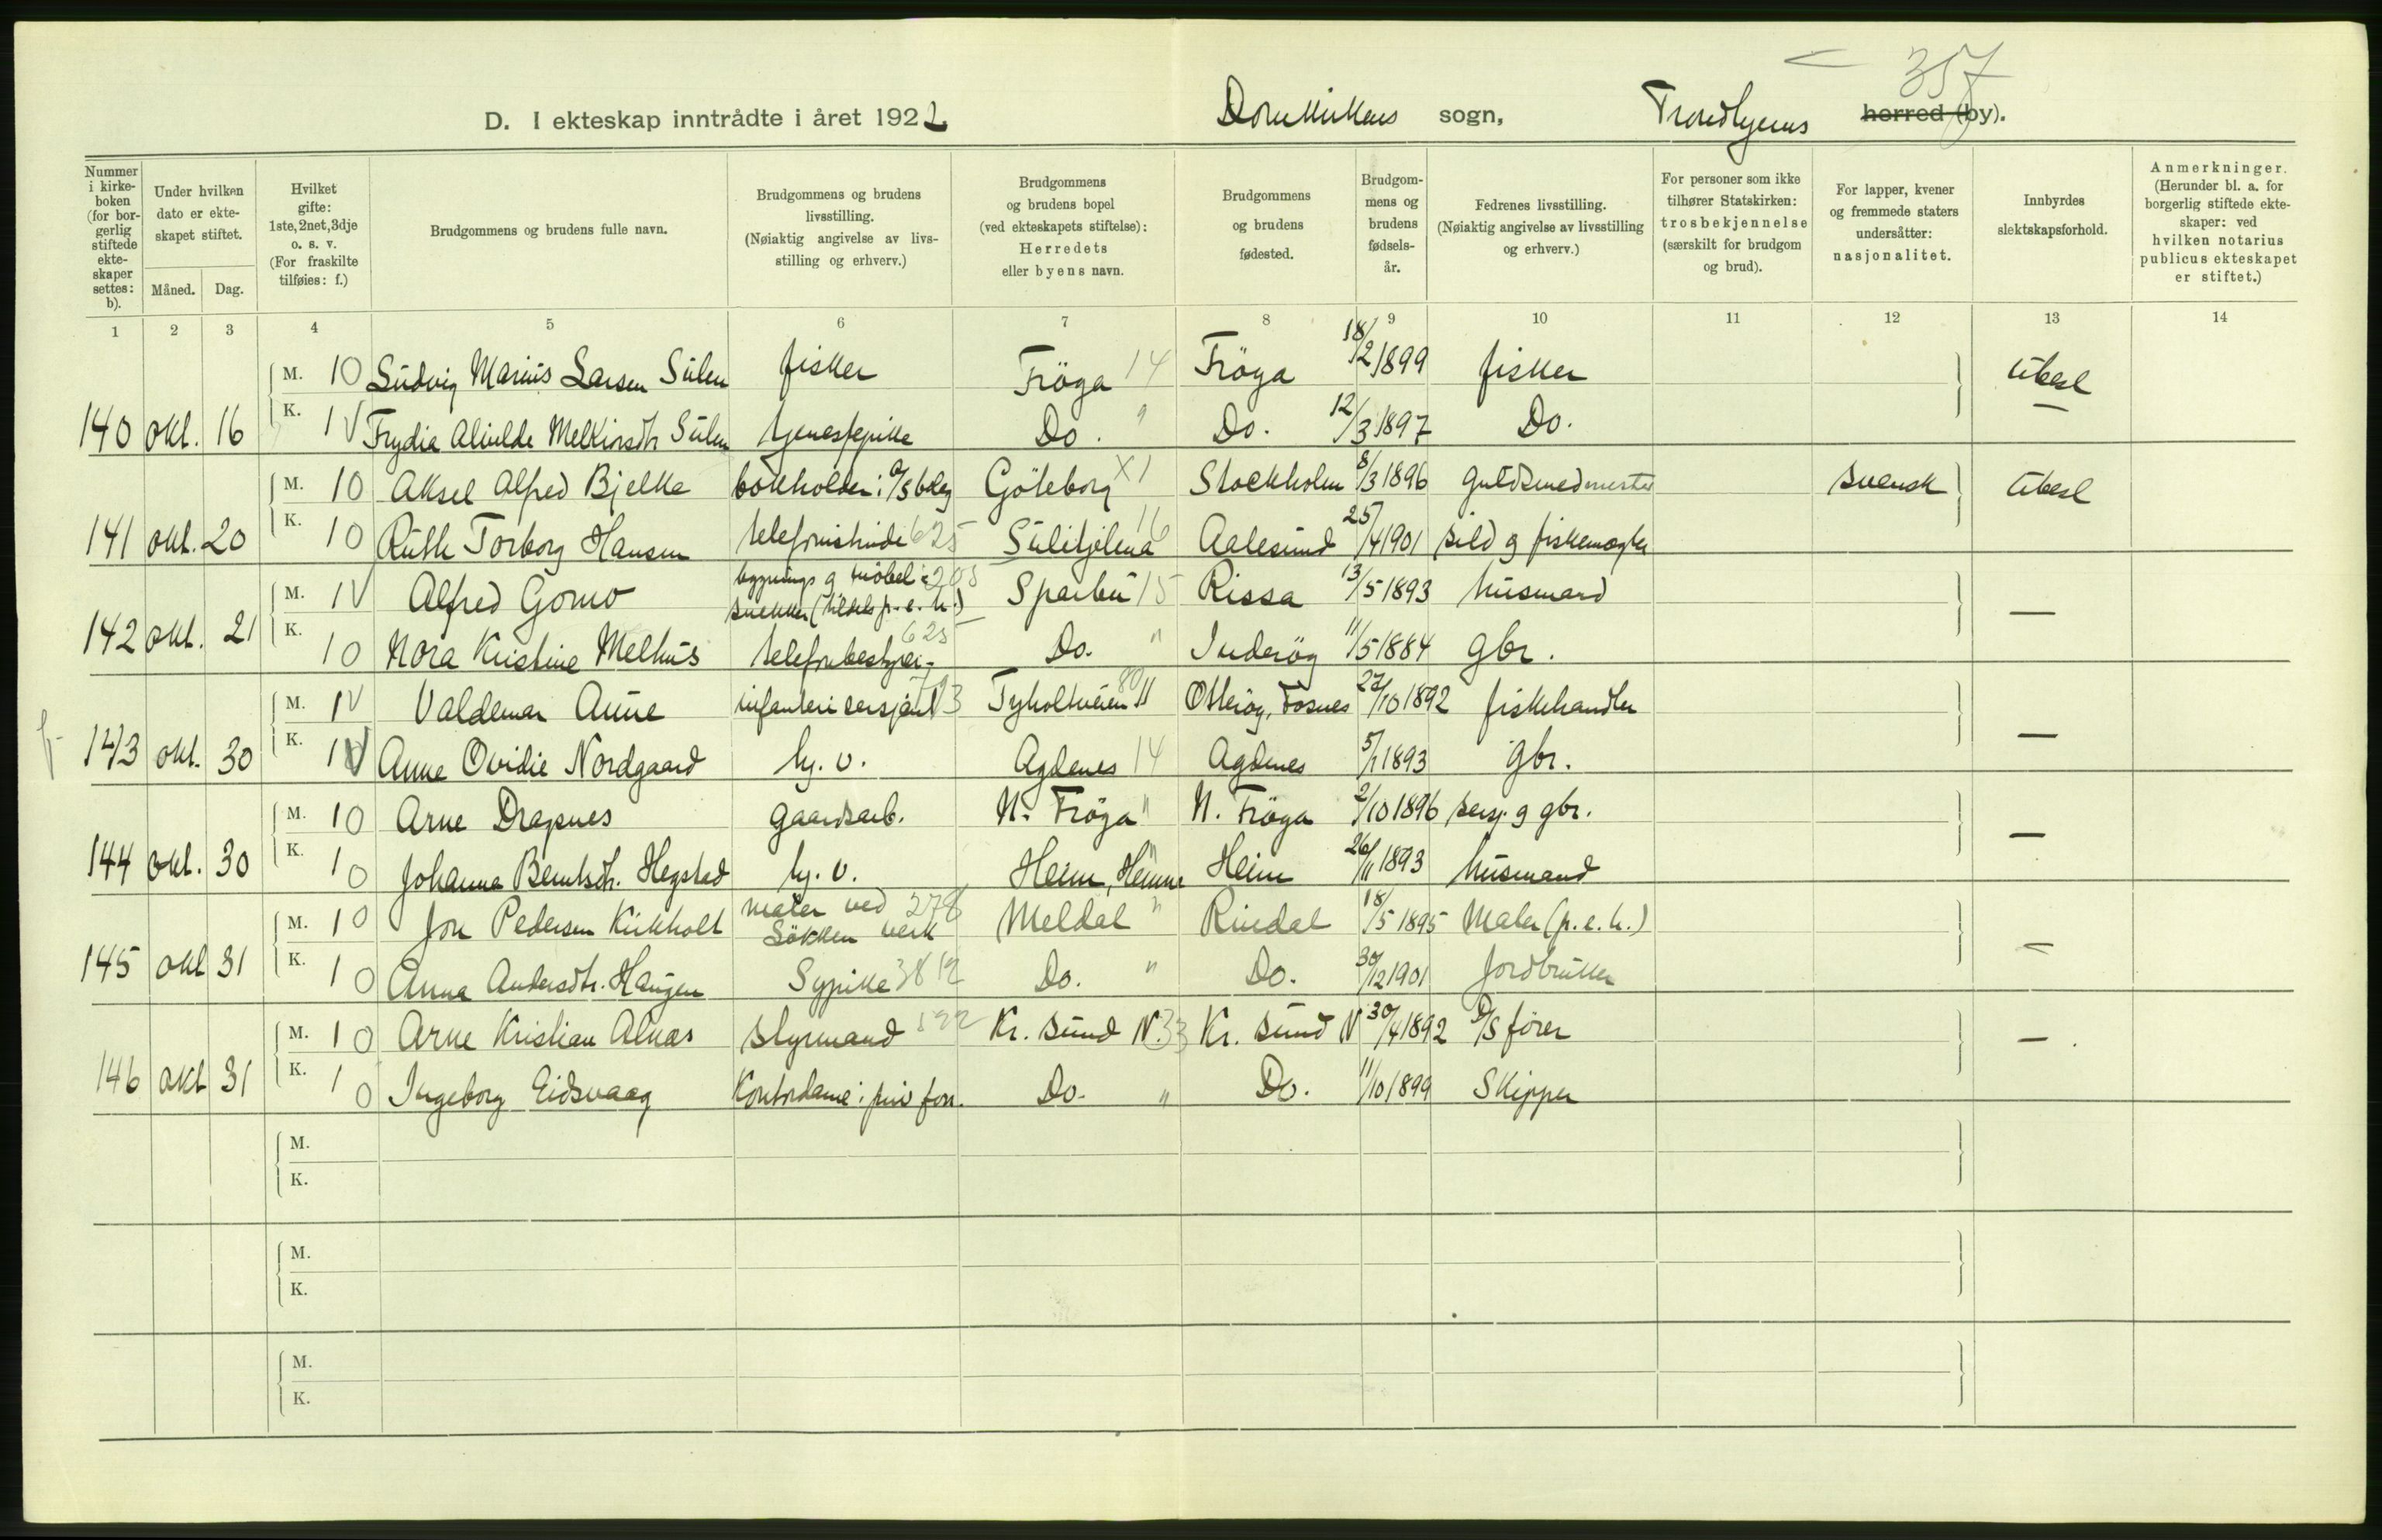 357
D. I ekteskap inntrådte i året 1922 Domkirkens sogn, Trondhjems herred (by).
Nummer i kirkeboken (for borgerlig stiftede ekteskaper settes: b).
Under hvilken dato er ekteskapet stiftet.
Måned. Dag.
Hvilket gifte: 1ste, 2net, 3dje o. s. v. (For fraskilte tilføies: f.)
Brudgommens og brudens fulle navn.
Brudgommens og brudens livsstilling. (Nøiaktig angivelse av livsstilling og erhverv.)
Brudgommens og brudens bopel (ved ekteskapets stiftelse): Herredets eller byens navn.
Brudgommens og brudens fødested.
Brudgommens og brudens fødselsår.
Fedrenes livsstilling. (Nøiaktig angivelse av livsstilling og erhverv.)
For personer som ikke tilhører Statskirken: trosbekjennelse (særskilt for brudgom og brud).
For lapper, kvener og fremmede staters undersåtter: nasjonalitet.
Innbyrdes slektskapsforhold.
Anmerkninger. (Herunder bl. a. for borgerlig stiftede ekteskaper: ved hvilken notarius publicus ekteskapet er stiftet.)
1 2 3 4 5 6 7 8 9 10 11 12 13 14
M. 10 Ludvig Marius Larsen Sulen fisker Fröya 14 Fröya 18/2 1899 fisker ubesl
140 okt. 16 K. 1V Frydia Alvilde Melkiorsdtr Sulen tjenestepike Do. " Do. 12/3 1897 Do.
M. 10 Aksel Alfred Bjelke bokholder i A/S Göteborg X1 Stockholm 8/3 1896 guldsmedmester svensk ubesl
141 okt. 20 K. 10 Ruth Torborg Hansen telefonistinde 625 Sulitjelma 16 Aalesund 25/4 1901 sild og fiskemægler
M. 1V Alfred Gomo bygnings og möbelsnekker (tildels p.e.h.) Sparbu 15 Rissa 13/5 1893 husmand —
142 okt. 21 K. 10 Nora Kristine Melhus telefonbestyrer 625 Do. " Inderöy 11/5 1884 gbr.
M. 1V Valdemar Aune infanteri sersjant Tyholtveien 11 Otteröy, Fosnes 27/10 1892 fiskehandler
143 okt. 30 K. 1V Anne Ovidie Nordgaard hj. v. Agdenes 14 Agdenes 5/1 1893 gbr. —
M. 10 Arne Dragsnes gaardsarb. N. Fröya " N. Fröya 2/10 1896 sersj. og gbr.
144 okt. 30 K. 10 Johanna Berntsdtr. Hegstad hj. v. Heim, Hemne Heim 26/11 1893 husmand —
M. 10 Jon Pedersen Kirkholt maler ved Lökken verk 278 Meldal " Rindal 18/5 1895 Maler (p.e.h.)
145 okt 31 K. 10 Anna Andersdtr. Haugen Sypike 3812 Do. " Do. 30/12 1901 Jordbruker —
M. 10 Arne Kristian Alnæs styrmand 522 Kr. sund N. 33 Kr. sund N 30/4 1892 D/S förer —
146 okt 31 K. 10 Ingeborg Eidsvaag Kontordame i priv forr. Do. " Do. 11/10 1899 Skipper
M.
K.
M.
K.
M.
K.